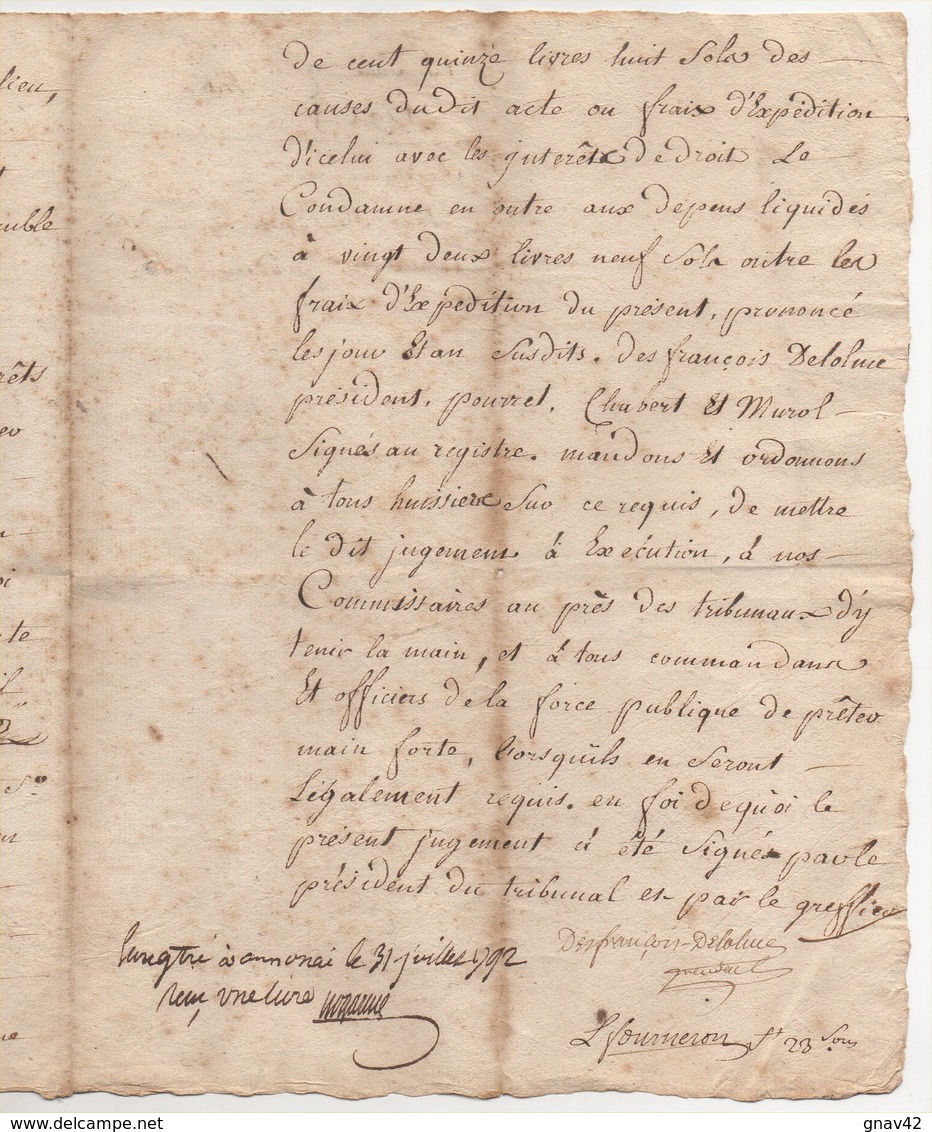 lieu,
de cent quinze livres huit Sols des
causes dudit acte ou fraix d'Expédition
d'icelui avec les jnterêts de droit Le
Condamne en outre aux depens liquidés
à vingt deux livres neuf Sols outre les
fraix d'Expedition du présent, prononcé
les jour Et an susdits. desfrançois Delolme
président, pourret, Chabert Et Murol
Signés au registre. mandons Et ordonnons
à tous huissiers Sur ce requis, de mettre
le dit jugement à Exécution, à nos
Commissaires au près des tribunaux d'y
tenir la main, et à tous commandans
Et officiers de la force publique de prêter
main forte, Lorsquïls en Seront
Légalement requis. en foi de quoi le
présent jugement à été Signés par le
président du tribunal et par le greffier
Desfrançois-Delolme
président
Enregtré à annonai le 31 juillet 1792
Reçu vne livre
Lfourneron
23 Sous
gnav42
delcampe.net